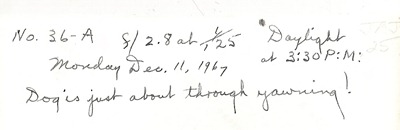 No. 36-A f/2.8 at 1/125 Daylight
Monday Dec. 11, 1967 at 3:30 P.M.
Dog's just about through yawning!